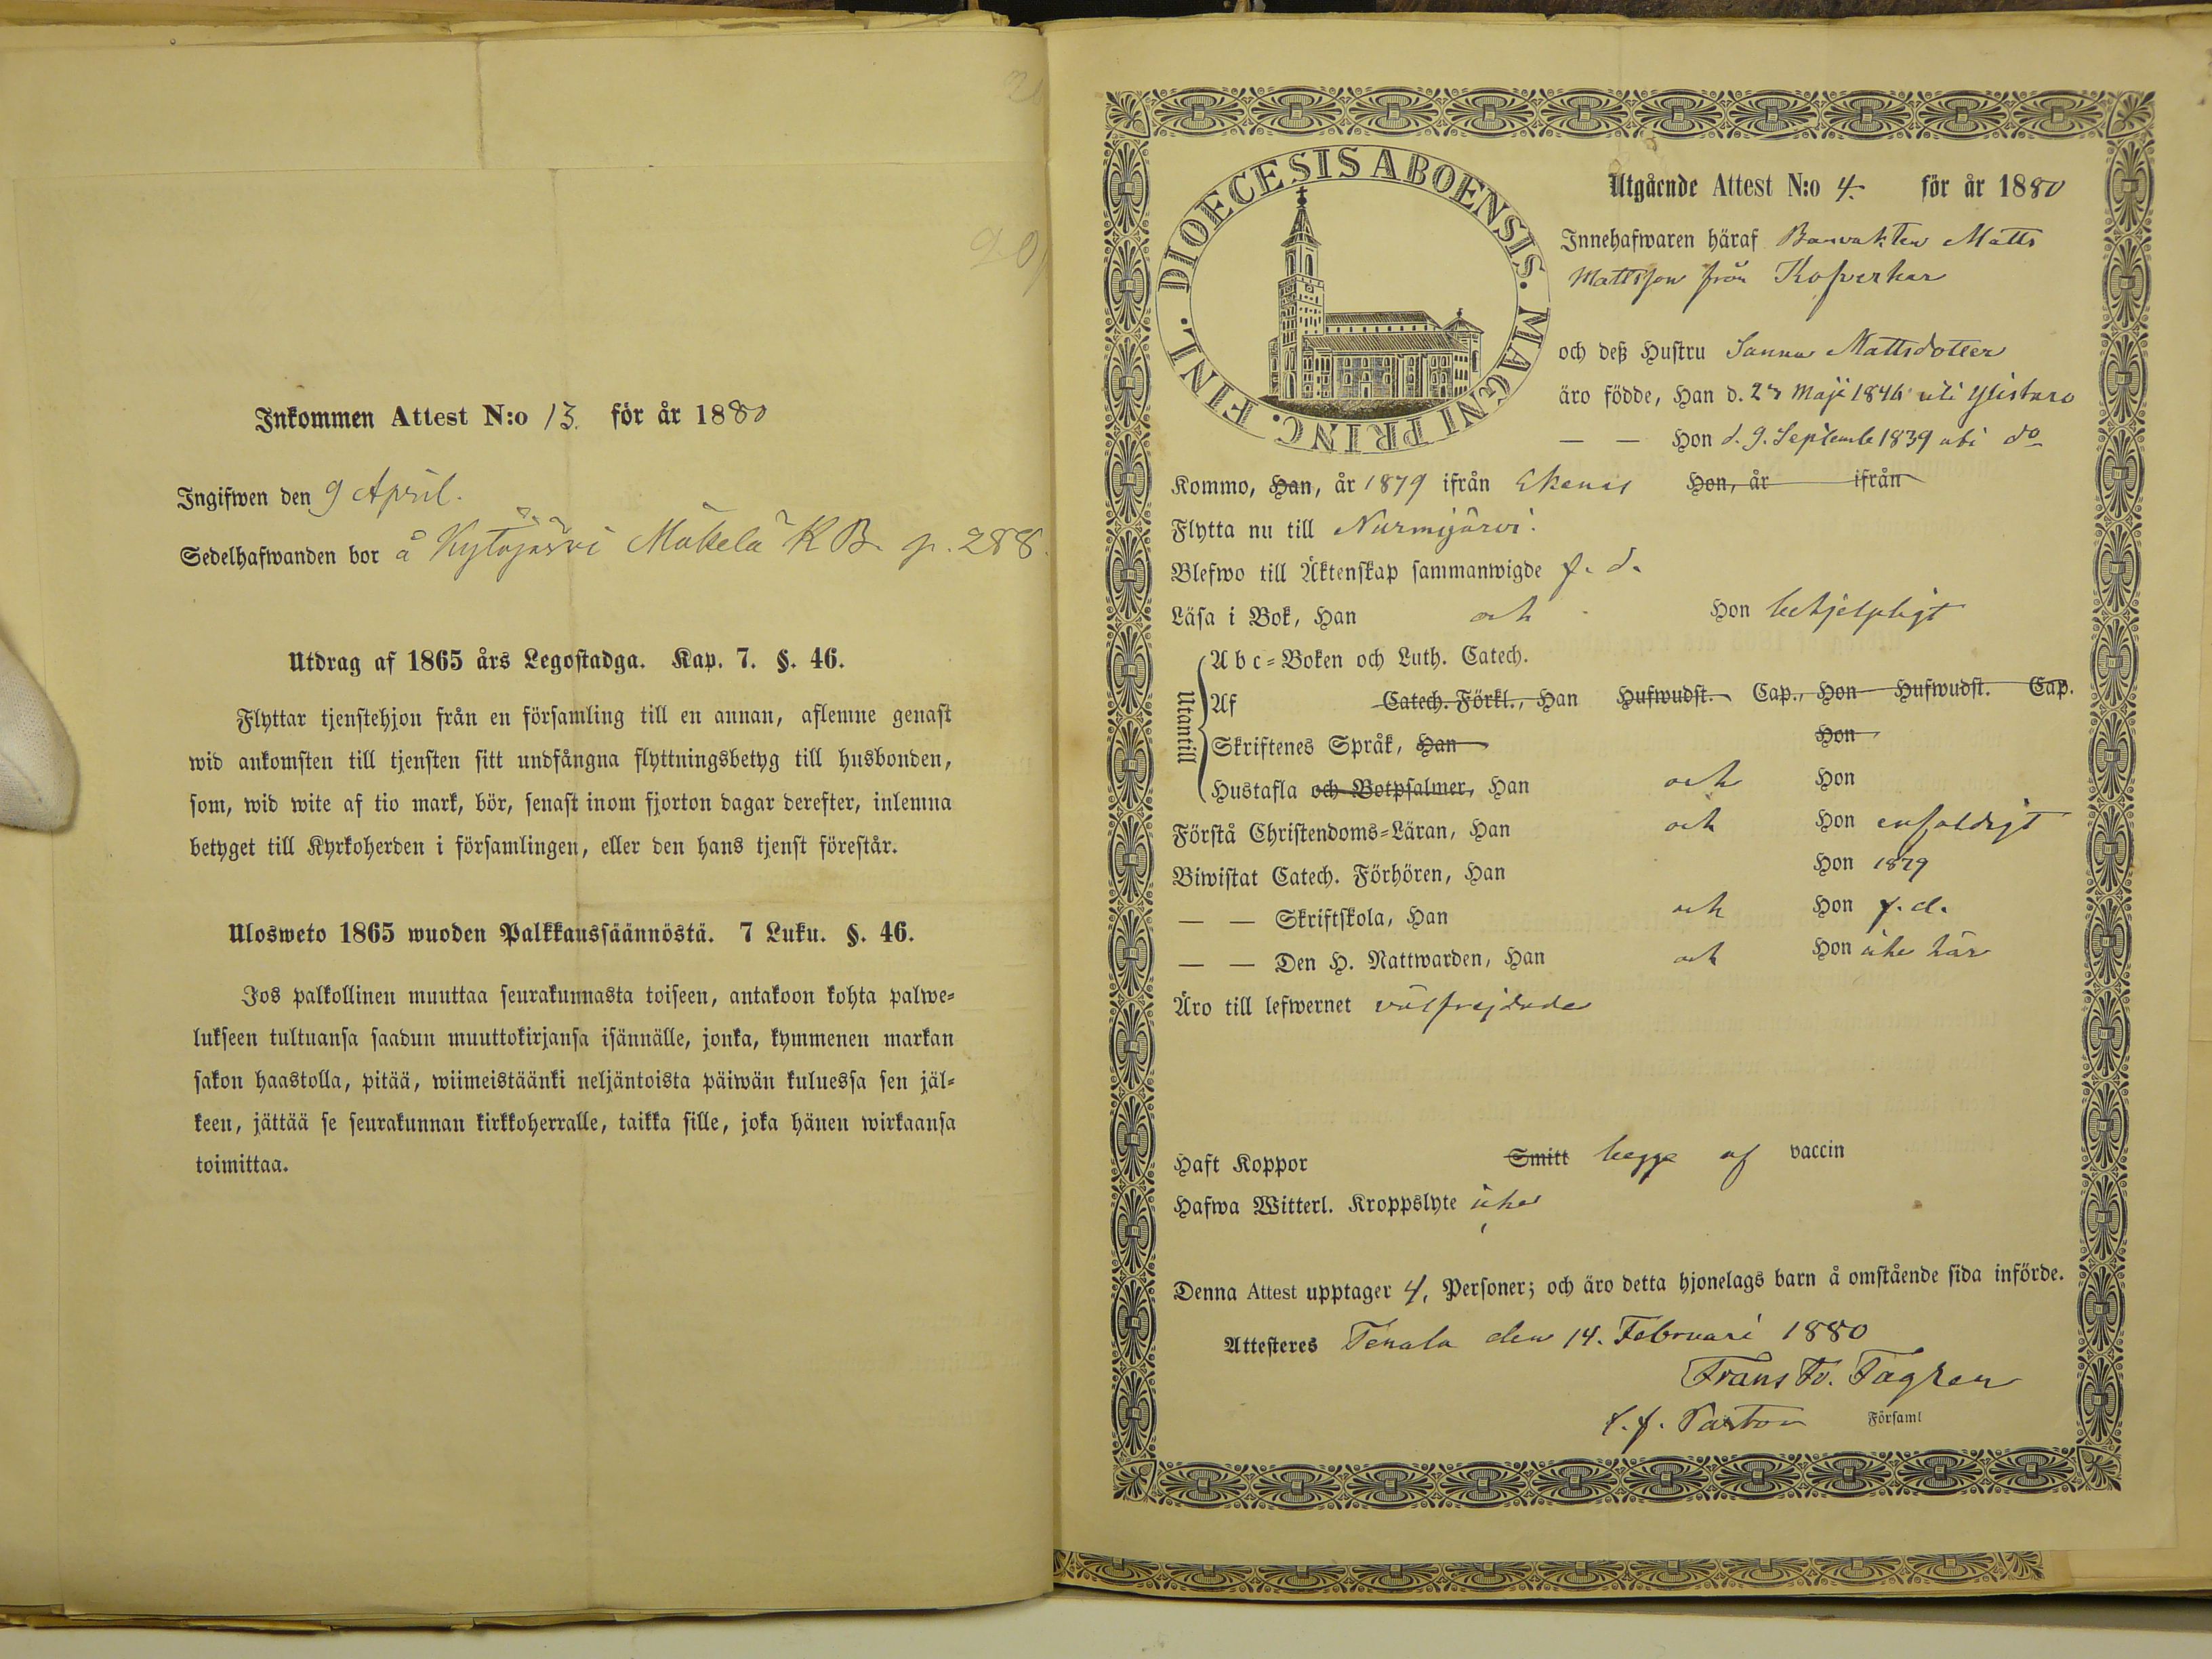 20
Inkommen Attest N:o 13. för år 1880
Ingifwen den 9 April.
Sedelhafwanden bor å Kytäjärvi Mäkelä K B. p. 288.
Utdrag af 1865 års Legostadga. Kap. 7. §. 46.
Flyttar tjenstehjon från en församling till en annan, aflemne genast
wid ankomsten till tjensten sitt undfångna flyttningsbetyg till husbonden,
som, wid wite af tio mark, bör, senast inom fjorton dagar derefter, inlemna
betyget till Kyrkoherden i församlingen, eller den hans tjenst förestår.
Ulosweto 1865 wuoden Palkkaussäännöstä. 7 Luku. §. 46.
Jos palkollinen muuttaa seurakunnasta toiseen, antakoon kohta palwe=
lukseen tultuansa saadun muuttokirjansa isännälle, jonka, kymmenen markan
sakon haastolla, pitää, wiimeistäänki neljäntoista päiwän kuluessa sen jäl=
keen, jättää se seurakunnan kirkkoherralle, taikka sille, joka hänen wirkaansa
toimittaa.
DIOECESIS ABOENSIS. MAGNI PRINC. FINL.
Utgående Attest N:o 4. för år 1880
Innehafwaren häraf Banvakten Matts
Mattsson från Kofverhar
och deß Hustru Sanna Mattsdotter
äro födde, Han d. 27 Maji 1846 uti Ylistaro
— — Hon d. 9. Septemb 1839 uti do
Kommo, Han, år 1879 ifrån Ekenäs Hon, år ifrån
Flytta nu till Nurmijärvi.
Blefwo till Äktenskap sammanwigde f. d.
Läsa i Bok, Han och Hon behjelpligt
Utantill
Abc=Boken och Luth. Catech.
Af Catech. Förkl., Han Hufwudst. Cap., Hon Hufwudst. Cap.
Skriftenes Språk, Han Hon
Hustafla och Botpsalmer, Han och Hon
Förstå Christendoms=Läran, Han och Hon enfaldigt
Biwistat Catech. Förhören, Han Hon 1879
— — Skriftskola, Han och Hon f. d.
— — Den H. Nattwarden, Han och Hon icke här
Äro till lefwernet välfrejdade
Haft Koppor Smitt begge af vaccin
Hafwa Witterl. Kroppslyte icke
Denna Attest upptager 4, Personer; och äro detta hjonelags barn å omstående sida införde.
Attesteres Tenala den 14. Februari 1880
Frans Fr. Fagren
t. f. Pastor Församl